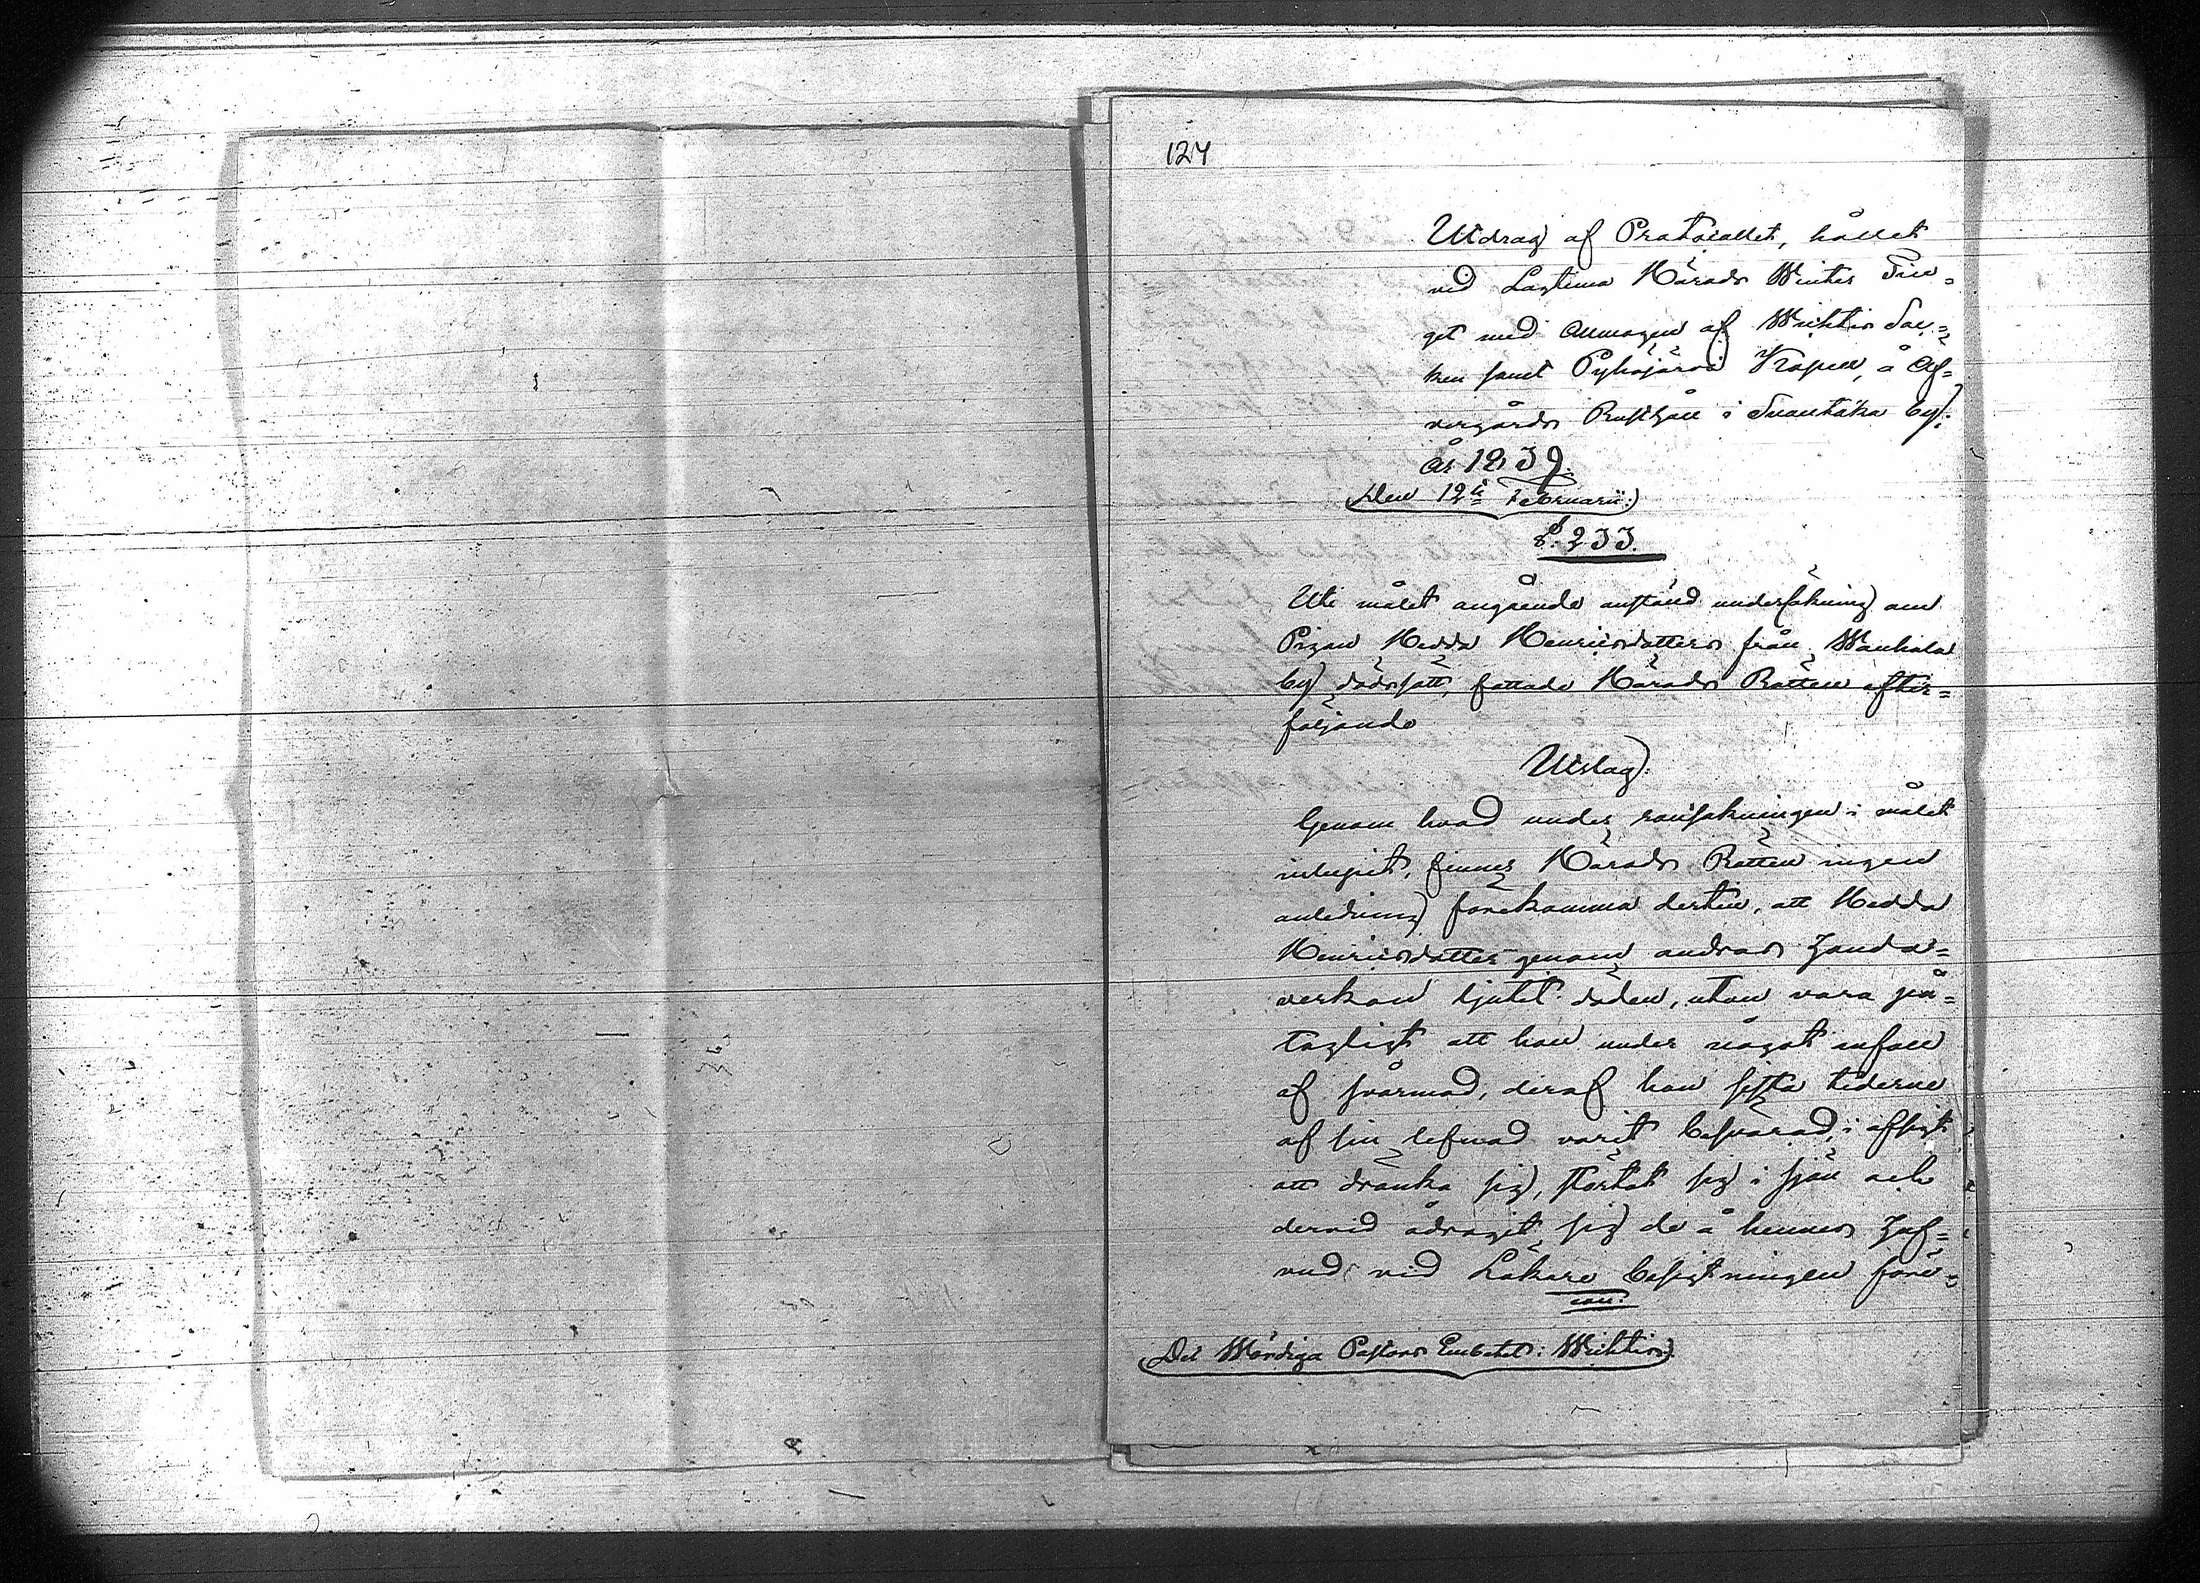 124
Utdrag af Protocollet, hållet
vid Lagtima Härads Winter Tin=
get med Allmogen af Wichtis Soc=
ken samt Pyhäjärvi Kapell, å Of=
vergårds Rusthåll i Suontaka by;
År 1839.
Den 12te Februarii:
§. 233.
Uti målet angående anstäld undersökning om
Pigan Hedda Henricsdotters från Wanhala
by dödssätt, fattade Härads Rätten efter=
följande
Utslag:
Genom hvad under ransakningen i målet
inlupit, finner Härads Rätten ingen
anledning förekomma dertill, att Hedda
Henricsdotter genom andras handa=
verkan ljutit döden, utan vara på=
tagligt att hon under något anfall
af svårmod, deraf hon sista tiderne
af sin lefnad varit besvärad, i afsigt
att dränka sig, störtat sig i sjön och
dervid ådragit sig de å hennes huf=
vud vid Läkare besigtningen före=
coll:
Det Wördiga Pastors Embetet: Wichtis.